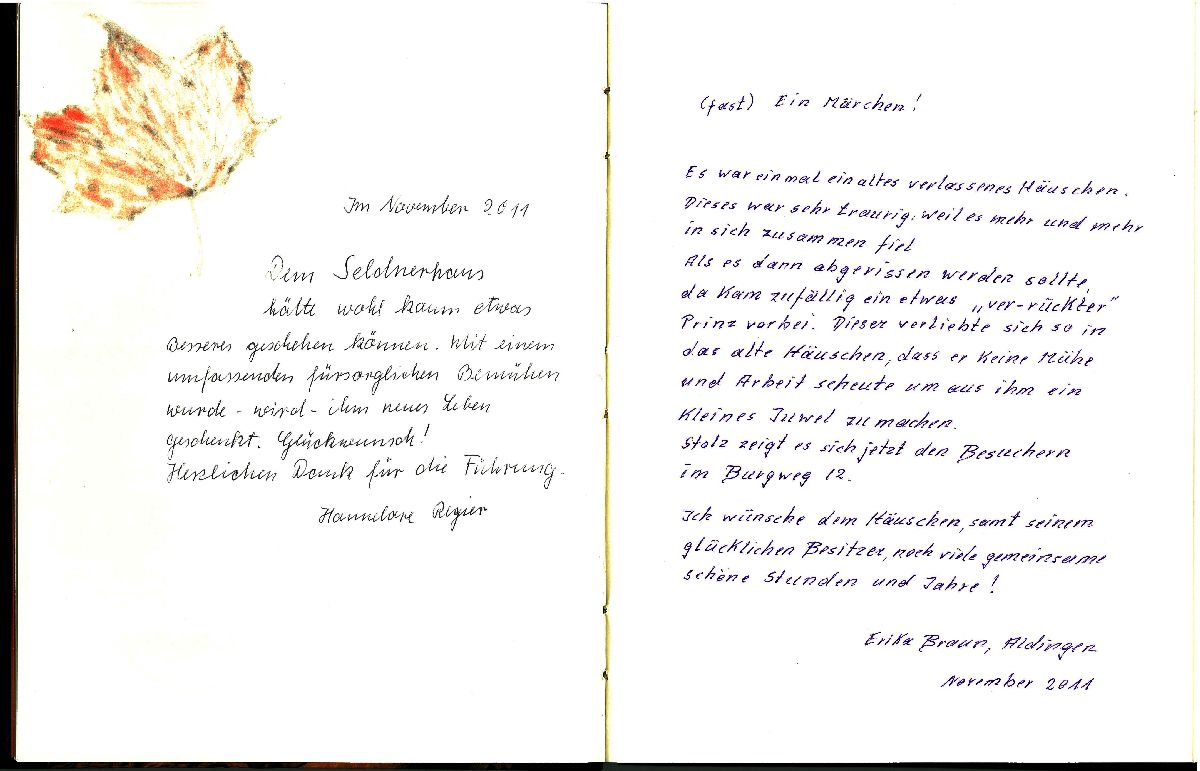 Im November 2011
Dem Seldnerhaus
hätte wohl kaum etwas
Besseres geschehen können. Mit einem
umfassenden fürsorglichen Bemühen
wurde - wird - ihm neues Leben
geschenkt. Glückwunsch!
Herzlichen Dank für die Führung.
Hannelore Regier
(fast) Ein Märchen!
Es war einmal ein altes verlassenes Häuschen.
Dieses war sehr traurig, weil es mehr und mehr
in sich zusammen fiel
Als es dann abgerissen werden sollte,
da kam zufällig ein etwas „ver-rückter"
Prinz vorbei. Dieser verliebte sich so in
das alte Häuschen, dass er keine Mühe
und Arbeit scheute um aus ihm ein
kleines Juwel zu machen.
Stolz zeigt es sich jetzt den Besuchern
im Burgweg 12.
Ich wünsche dem Häuschen, samt seinem
glücklichen Besitzer, noch viele gemeinsame
schöne Stunden und Jahre!
Erika Braun, Aldingen
November 2011